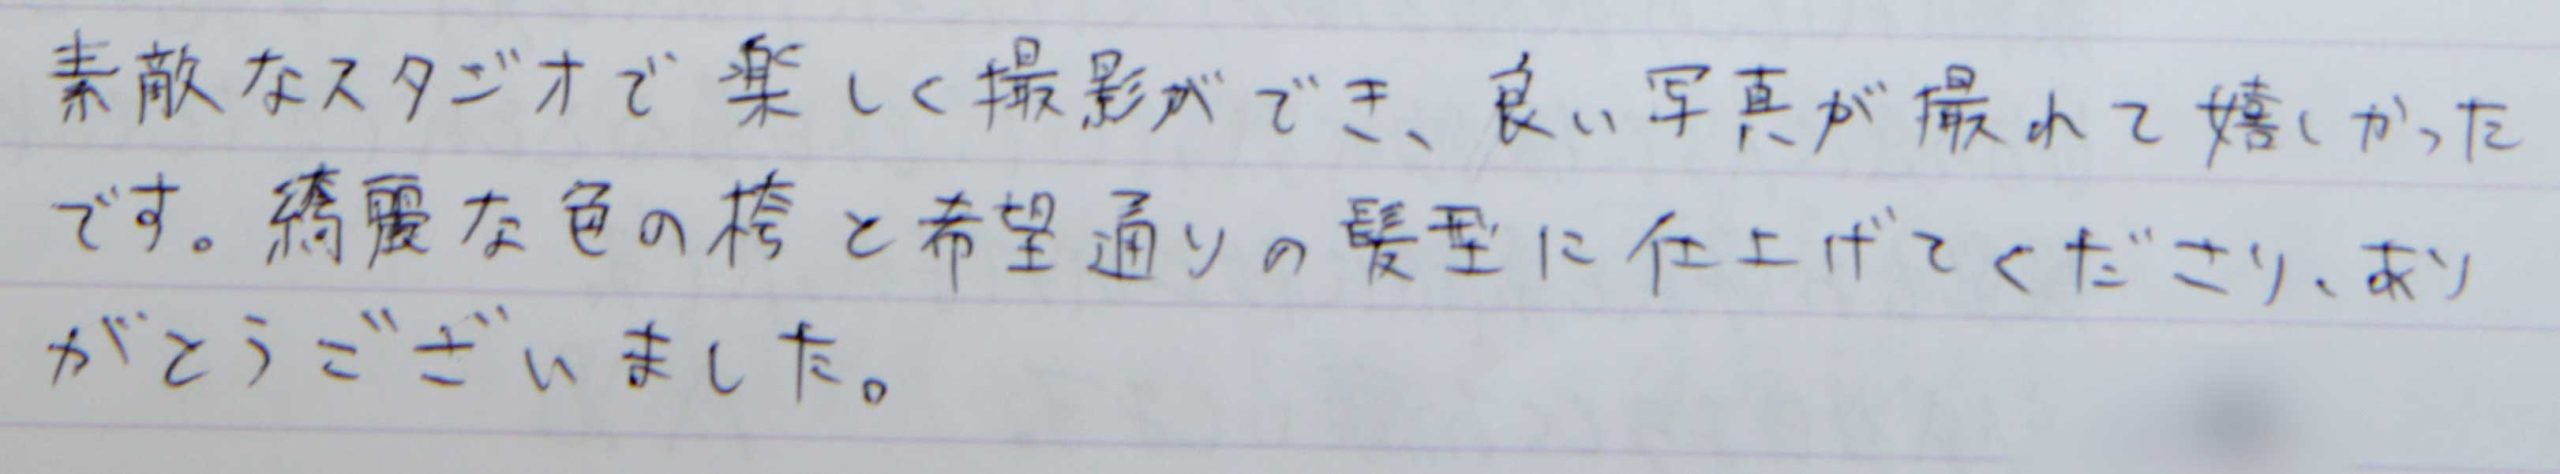 素敵なスタジオで楽しく撮影ができ、良い写真が撮れて嬉しかった
です。綺麗な色の袴と希望通りの髪型に仕上げてくださり、あり
がとうございました。